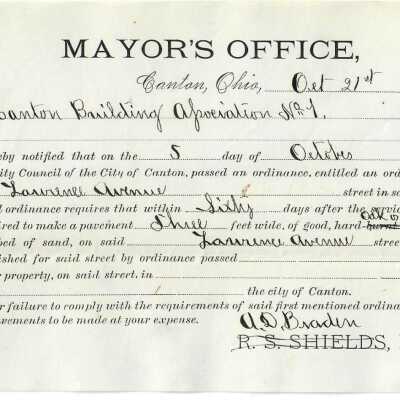 MAYOR'S OFFICE,
Canton, Ohio, Oct 21st
Canton Building Association No. 1.
eby notified that on the 5 day of October
ity Council of the City of Canton, passed an ordinance, entitled an ord
Lawrence Avenue street in sa
d ordinance requires that within Sixty days after the servic
ired to make a pavement Three feet wide, of good, hard-burnt
bed of sand, on said Lawrence Avenue stree
lished for said street by ordinance passed
r property, on said street, in
the city of Canton.
r failure to comply with the requirements of said first mentioned ordina
vements to be made at your expense.
A. D. Braden
R. S. SHIELDS,